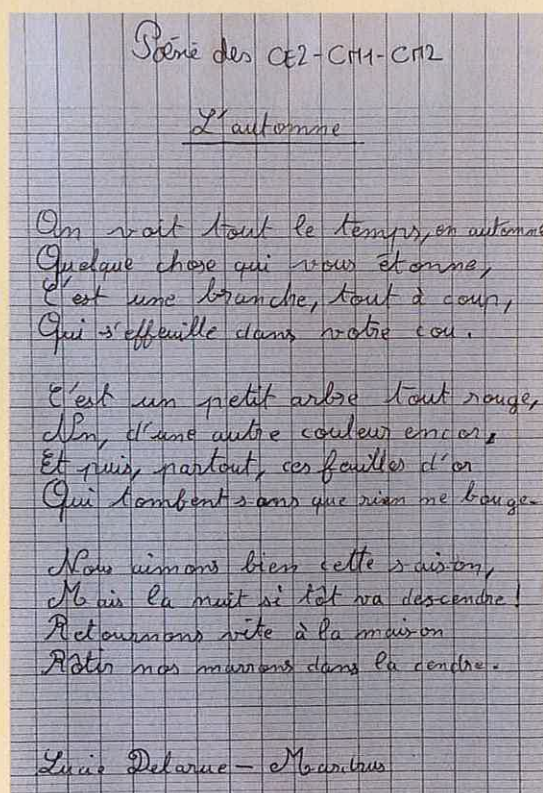 Poésie des CE2-CM1-CM2
L'automne
On voit tout le temps, en automne
Quelque chose qui vous étonne,
C'est une branche, tout à coup,
Qui s'effeuille dans votre cou.
C'est un petit arbre tout rouge,
Un, d'une autre couleur encor,
Et puis, partout, ces feuilles d'or
Qui tombent sans que rien ne bouge.
Nous aimons bien cette saison,
Mais la nuit si tôt va descendre !
Retournons vite à la maison
Rôtir nos marrons dans la cendre.
Lucie Delarue - Mardrus